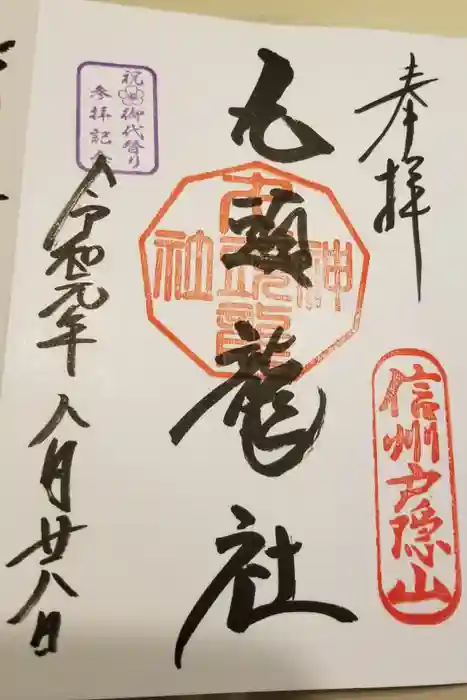 奉拝
信州戸隠山
九頭龍社
九頭龍神社
祝御代替り
参拝記念
令和元年八月廿八日